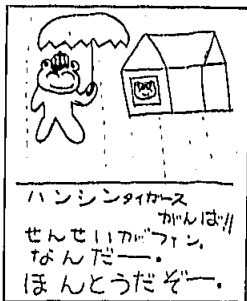 ハンシンタイガース
がんば!!
せんせいがファン。
なんだー。
ほんとうだぞー。